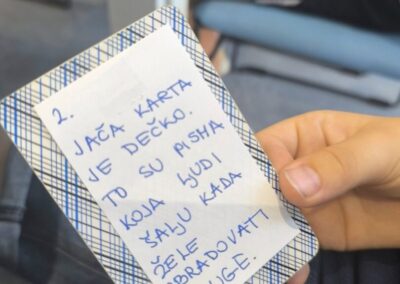 2.
JAČA KARTA
JE DEČKO.
TO SU PISMA
KOJA LJUDI
ŠALJU KADA
ŽELE
OBRADOVATI